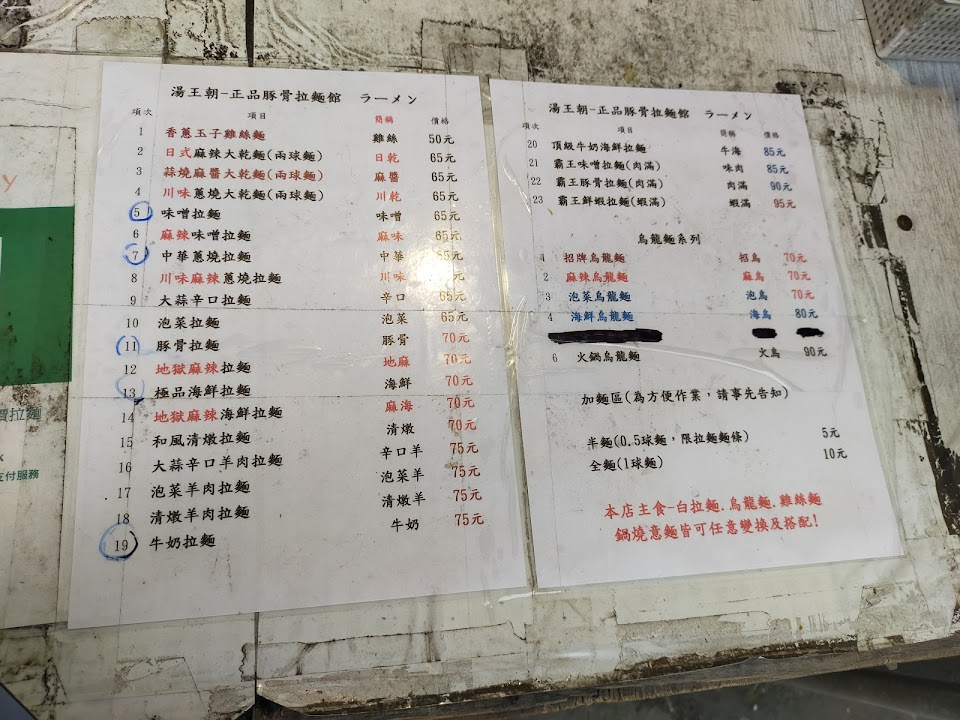 湯王朝-正品豚骨拉麵館 ラーメン
項次 項目 簡稱 價格
1 香蔥玉子雞絲麵 雞絲 50元
2 日式麻辣大乾麵(兩球麵) 日乾 65元
3 蒜燒麻醬大乾麵(兩球麵) 麻醬 65元
4 川味蔥燒大乾麵(兩球麵) 川乾 65元
5 味噌拉麵 味噌 65元
6 麻辣味噌拉麵 麻味 65元
7 中華蔥燒拉麵 中華 元
8 川味麻辣蔥燒拉麵 川味 元
9 大蒜辛口拉麵 辛口 65元
10 泡菜拉麵 泡菜 65元
11 豚骨拉麵 豚骨 70元
12 地獄麻辣拉麵 地麻 70元
13 極品海鮮拉麵 海鮮 70元
14 地獄麻辣海鮮拉麵 麻海 70元
15 和風清燉拉麵 清燉 70元
16 大蒜辛口羊肉拉麵 辛口羊 75元
17 泡菜羊肉拉麵 泡菜羊 75元
18 清燉羊肉拉麵 清燉羊 75元
19 牛奶拉麵 牛奶 75元
湯王朝-正品豚骨拉麵館 ラーメン
項次 項目 簡稱 價格
20 頂級牛奶海鮮拉麵 牛海 85元
21 霸王味噌拉麵(肉滿) 味肉 85元
22 霸王豚骨拉麵(肉滿) 肉滿 90元
23 霸王鮮蝦拉麵(蝦滿) 蝦滿 95元
烏龍麵系列
1 招牌烏龍麵 招烏 70元
2 麻辣烏龍麵 麻烏 70元
3 泡菜烏龍麵 泡烏 70元
4 海鮮烏龍麵 海烏 80元
6 火鍋烏龍麵 火烏 90元
加麵區(為方便作業，請事先告知)
半麵(0.5球麵，限拉麵麵條) 5元
全麵(1球麵) 10元
本店主食-白拉麵.烏龍麵.雞絲麵
鍋燒意麵皆可任意變換及搭配!
Y
拉麵
付服務